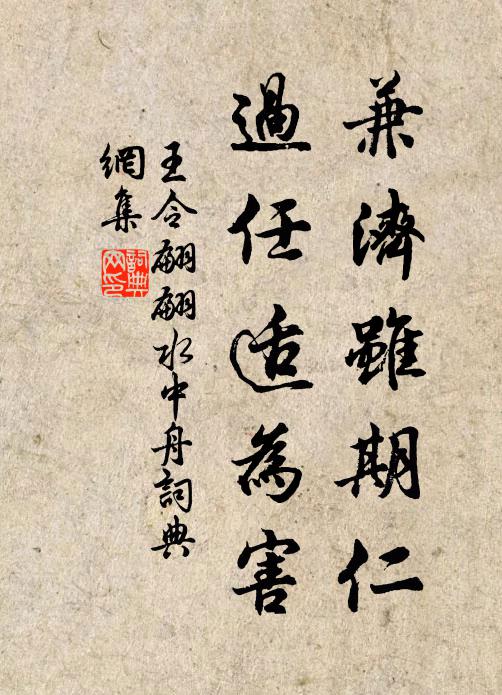 兼濟雖期仁
過任适為害
王令翩翩水中舟詞典
網集
詞典
网印